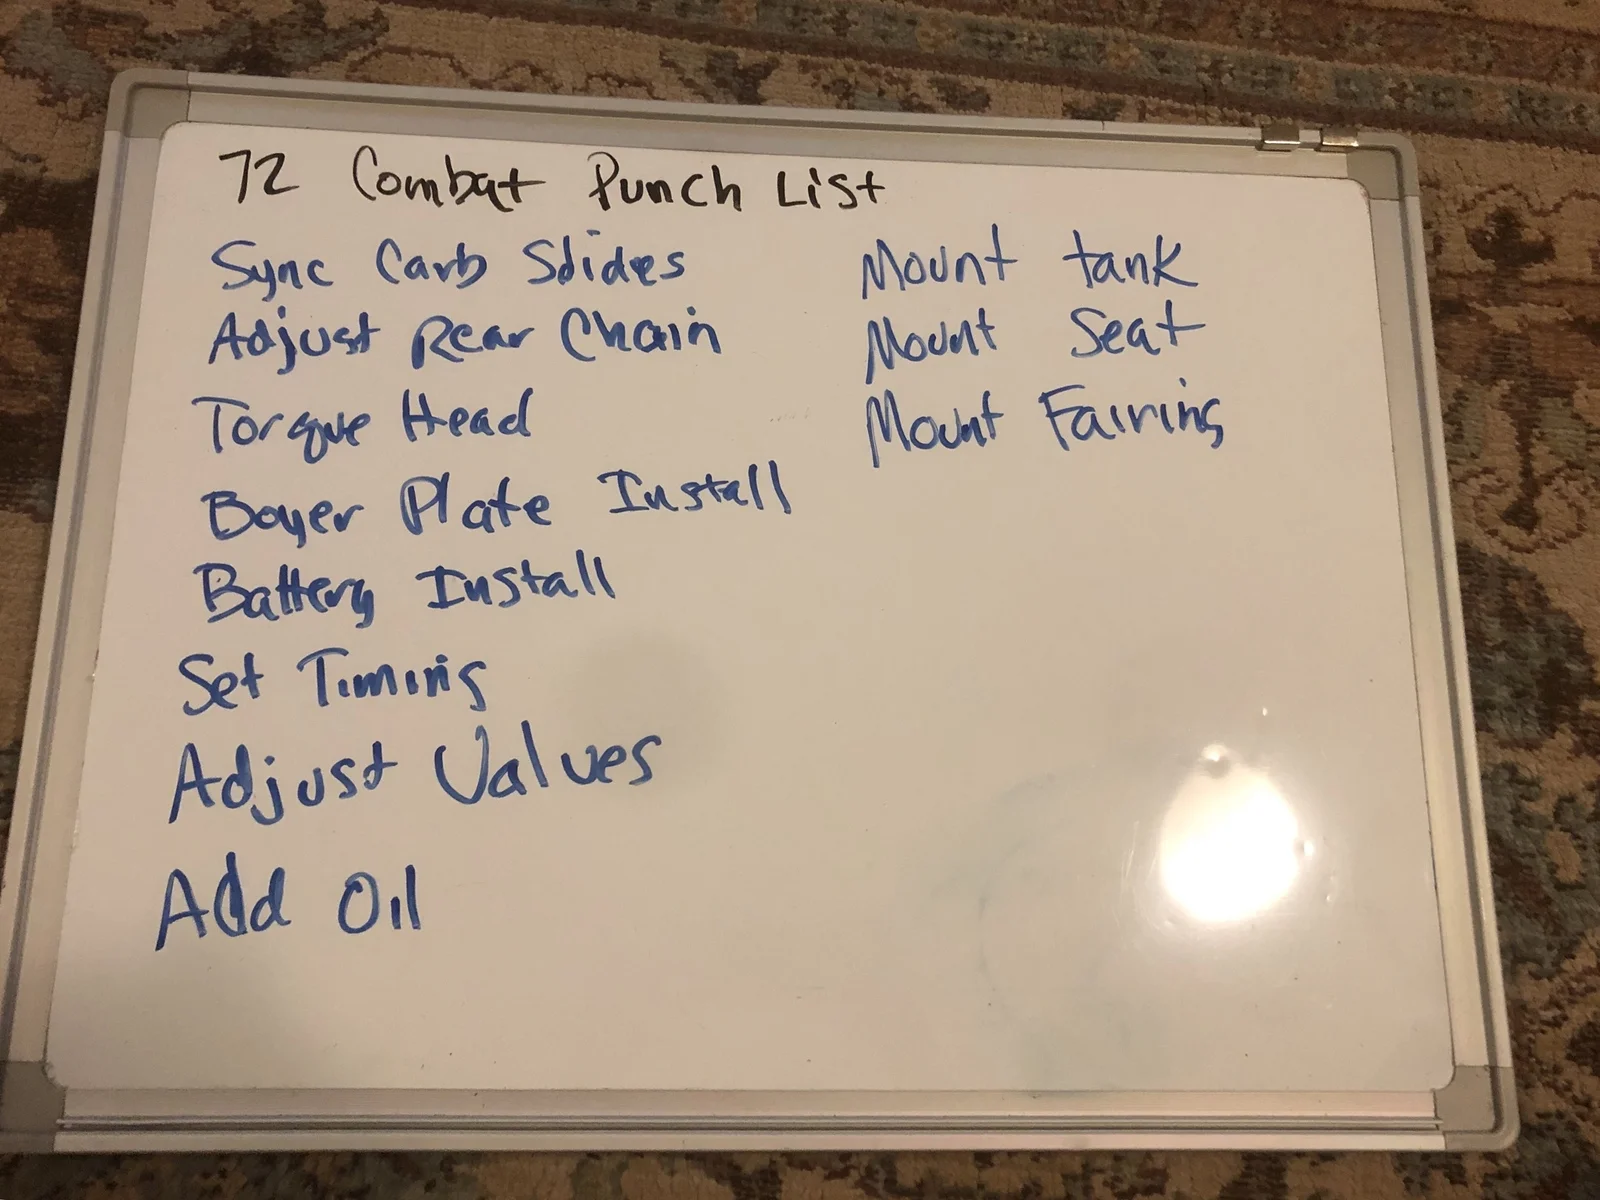 72 Combat Punch List
Sync Carb Slides
Adjust Rear Chain
Torque Head
Boyer Plate Install
Battery Install
Set Timing
Adjust Valves
Add Oil
Mount tank
Mount Seat
Mount Fairing